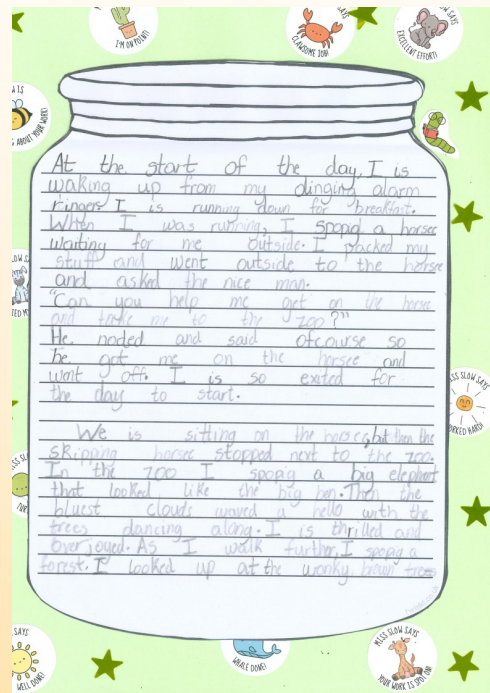 I'M ON POINT!
CLAWSOME JOB!
SAYS
W SAYS
EXCELLENT EFFORT!
ABOUT YOUR WORK!
At the start of the day, I is
waking up from my dinging alarm
ringers I is running down for breakfast.
When I was running, I spopig a horsee
waiting for me outside. I packed my
stuff and went outside to the horsee
and asked the nice man.
"Can you help me get on the horsee
and take me to the zoo?"
He noded and said ofcourse so
he got me on the horsee and
went off. I is so exited for
the day to start.
We is sitting on the horsee, but then the
skipping horsee stopped next to the zoo.
In the zoo I spopig a big elephent
that looked like the big ben. Then the
bluest clouds waved a hello with the
trees dancing along. I is thrilled and
overjoyed. As I walk further, I spopig a
forest. I looked up at the wonky, brown trees
MISS SLOW SAYS
WORKED HARD!
SAYS
WELL DONE!
WHALE DONE!
MISS SLOW SAYS
YOUR WORK IS SPOT ON!